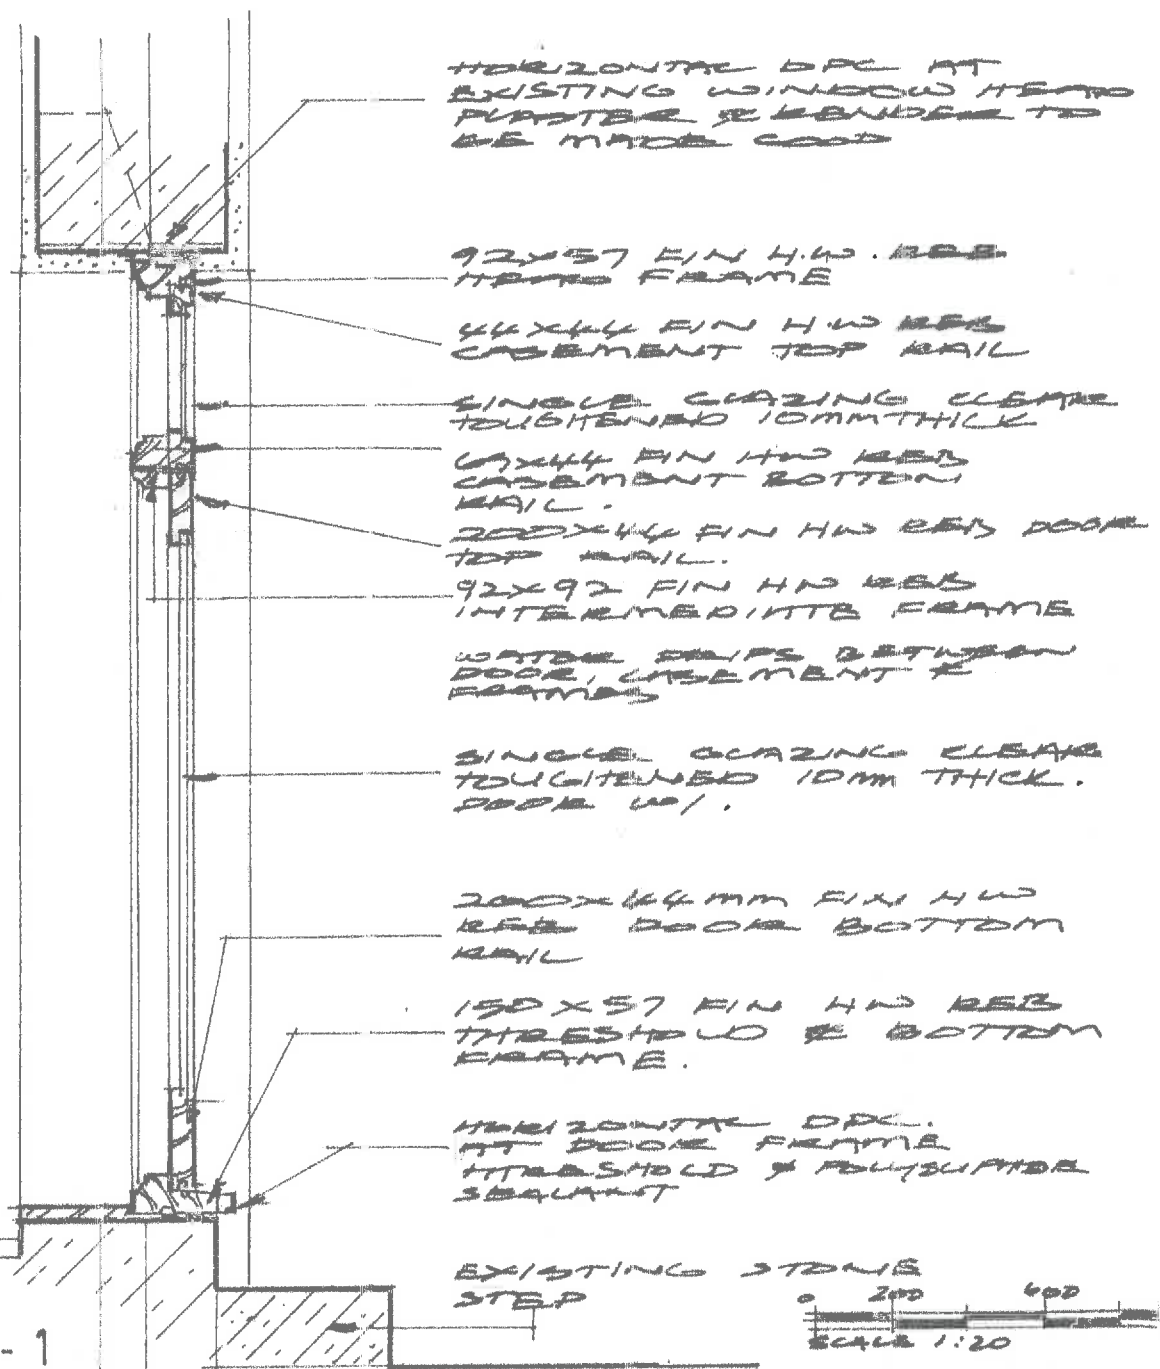 HORIZONTAL DPC AT
EXISTING WINDOW HEAD
PLASTER & RENDER TO
BE MADE GOOD
92X57 FIN H.W. REB
HEAD FRAME
44X44 FIN H.W REB
CASEMENT TOP RAIL
SINGLE GLAZING CLEAR
TOUGHENED 10MM THICK
69X44 FIN HW REB
CASEMENT BOTTOM
RAIL.
200X44 FIN HW REB DOOR
TOP RAIL.
92X92 FIN HW REB
INTERMEDIATE FRAME
WATER DRIPS BETWEEN
DOOR, CASEMENT &
FRAMES
SINGLE GLAZING CLEAR
TOUGHENED 10mm THICK.
DOOR
200X44mm FIN HW
REB DOOR BOTTOM
RAIL
150X57 FIN HW REB
THRESHOLD & BOTTOM
FRAME.
HORIZONTAL DPC.
AT DOOR FRAME
THRESHOLD & POLYSULPHIDE
SEALANT
EXISTING STONE
STEP
0 200 600
SCALE 1:20
- 1